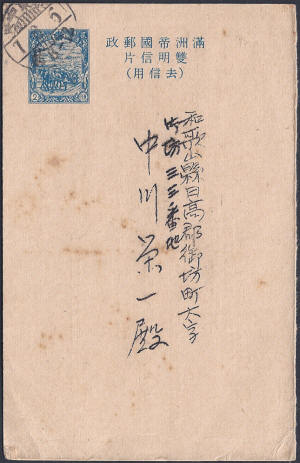 滿洲帝國郵政
雙明信片
(去信用)
2
和歌山縣日高郡御坊町大字
中川榮一殿